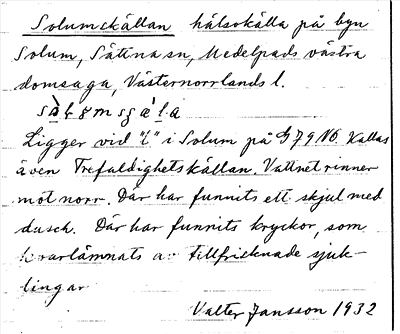 Solumskällan hälsokälla på byn
Solum, Sättna sn, Medelpads västra
domsaga, Västernorrlands l.
Ligger vid "l" i Solum på G79 NO. Kallas
även Trefaldighetskällan. Vattnet rinner
mot norr. Där har funnits ett skjul med
dusch. Där har funnits kryckor, som
kvarlämnats av tillfrisknade sjuk-
lingar
Valter Jansson 1932